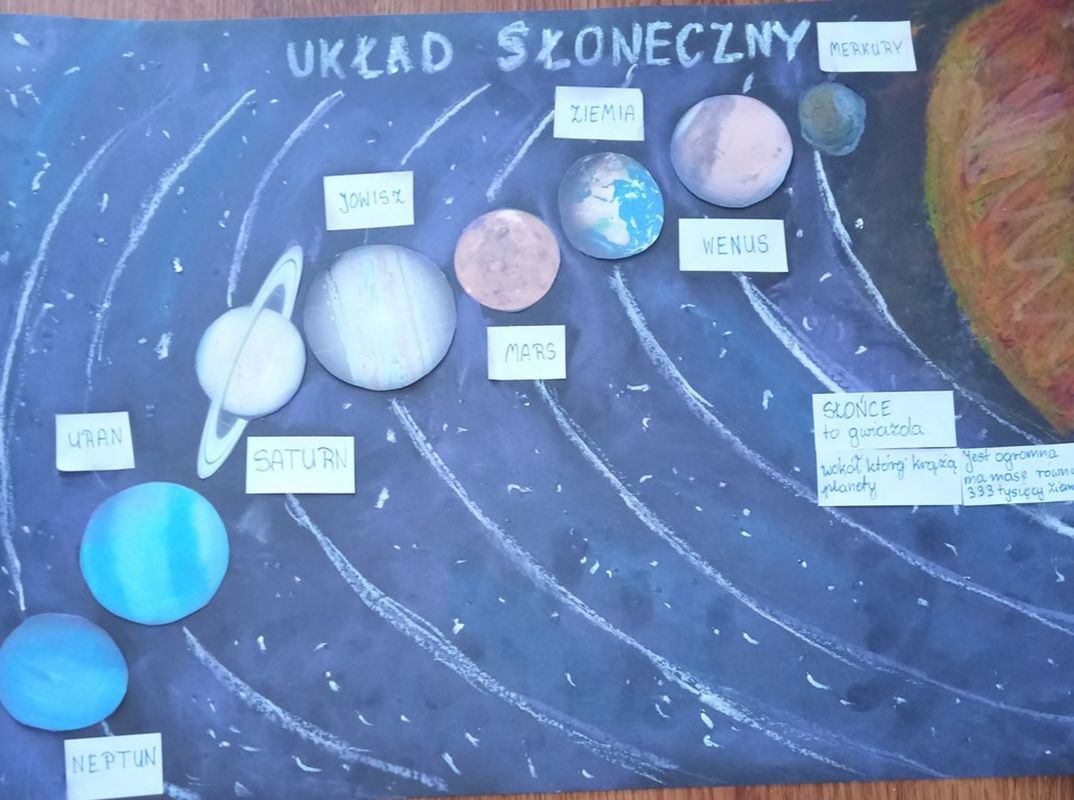 UKŁAD SŁONECZNY
MERKURY
ZIEMIA
WENUS
JOWISZ
MARS
URAN
SATURN
NEPTUN
SŁOŃCE
to gwiazda
wokół której krążą
planety
Jest ogromna
ma masę równą
333 tysięcy Ziem